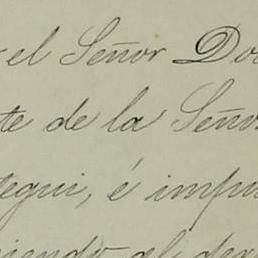 el Señor Do
te de la Seño
tegui, é impu
iendo al der